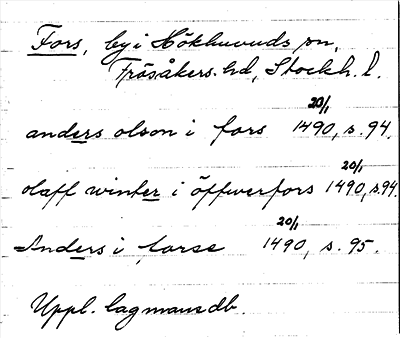 Fors, by i Hökhuvuds sn,
Frösåkers hd, Stockh. l.
anders olson i fors 20/1 1490, s. 94.
olaff winter i öffwerfors 20/1 1490, s94.
Anders i forse 20/1 1490, s. 95.
Uppl. lagmansdb.